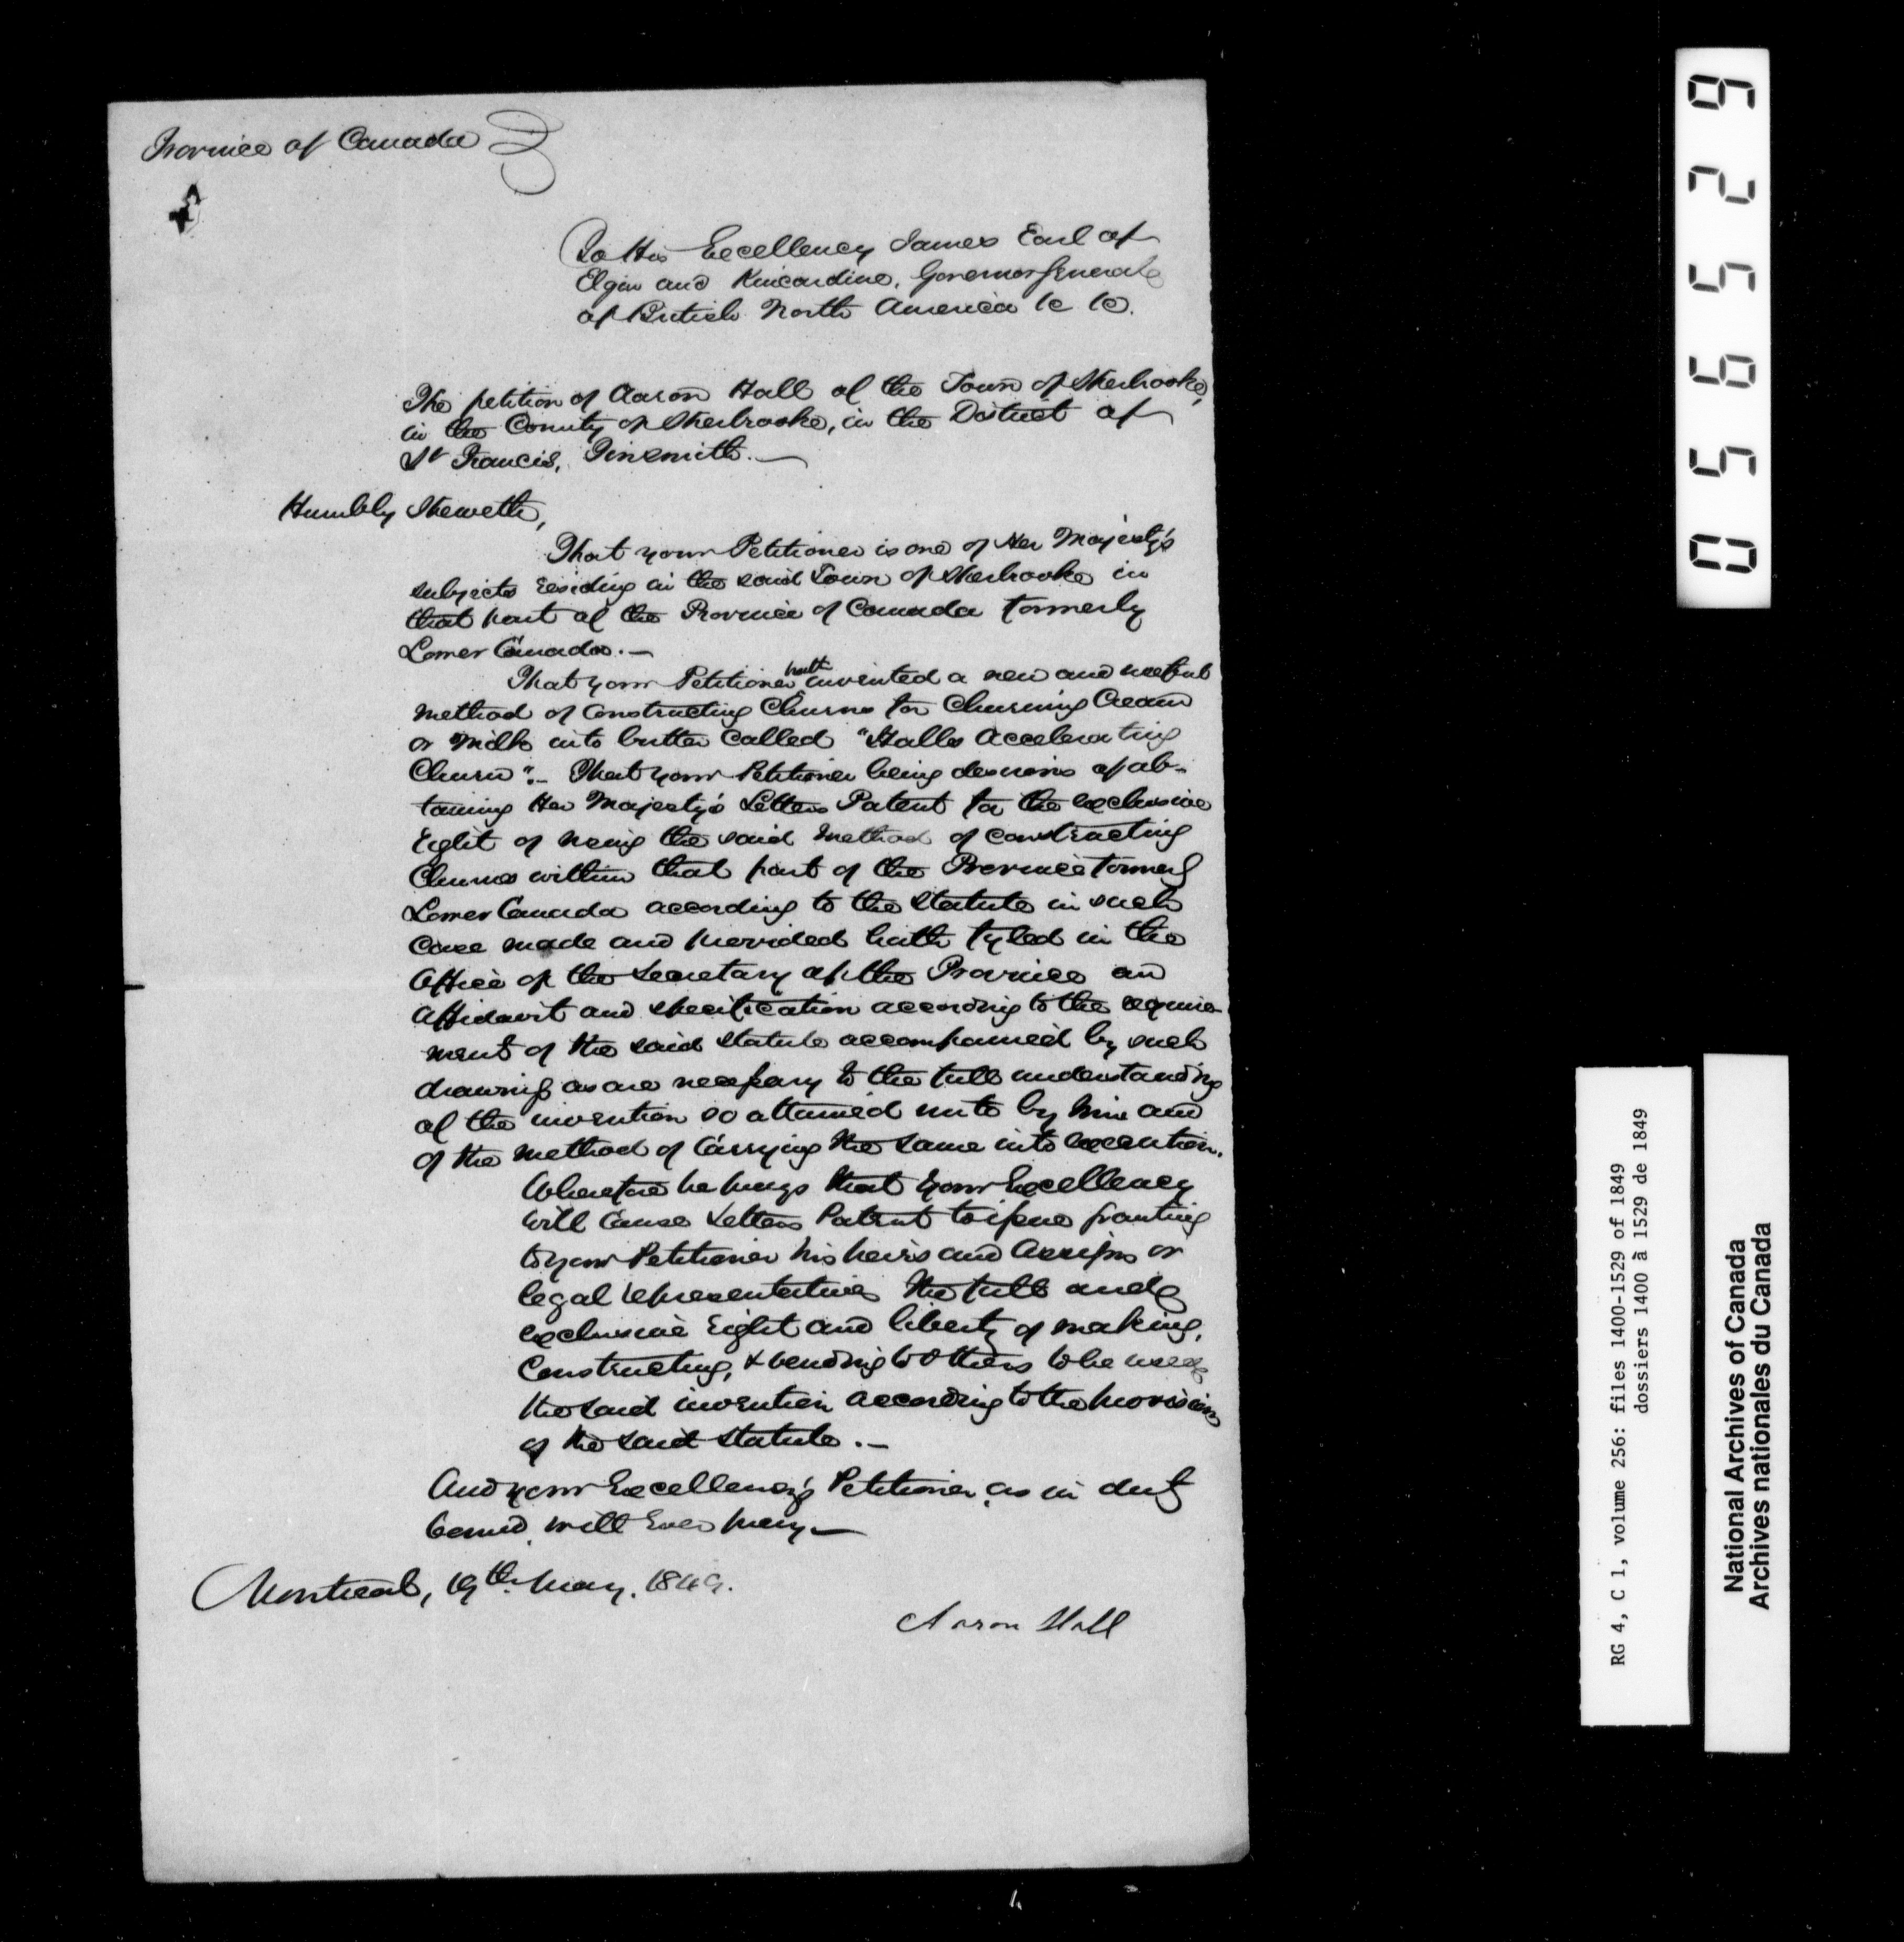 Province of Canada
To His Excellency James Earl of
Elgin and Kincardine, Governor General
of British North America &c &c.
The petition of Aaron Hall of the Town of Sherbrooke,
in the County of Sherbrooke, in the District of
St Francis, Tinsmith.—
Humbly Sheweth,
That your Petitioner is one of Her Majesty's
subjects residing in the said Town of Sherbrooke in
that part of the Province of Canada formerly
Lower Canada.—
That your Petitioner hath invented a new and useful
method of Constructing Churns for Churning Cream
or Milk into butter called "Halls Accelerating
Churn".— That your Petitioner being desirous of ob-
taining Her Majesty's Letters Patent for the exclusive
right of using the said Method of constructing
Churns within that part of the Province formerly
Lower Canada according to the Statute in such
Case made and provided hath fyled in the
Office of the Secretary of the Province an
Affidavit and specification according to the require-
ment of the said Statute accompanied by such
drawings as are necessary to the full understanding
of the invention so attained unto by him and
of the method of Carrying the same into execution.
Wherefore he prays that your Excellency
will Cause Letters Patent to issue granting
to your Petitioner his heirs and Assigns or
legal representatives the full and
exclusive right and liberty of making,
Constructing, & vending to others to be used
the said invention according to the provisions
of the said Statute.—
And your Excellency's Petitioner, as in duty
bound, will Ever pray—
Montreal, 19th May. 1849.
Aaron Hall
056529
RG 4, C 1, volume 256: files 1400-1529 of 1849
dossiers 1400 à 1529 de 1849
National Archives of Canada
Archives nationales du Canada